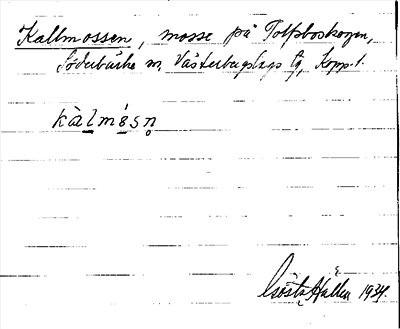 Kallmossen, mosse på Tolfsboskogen,
Söderbärke sn, Västerbergslags tg, Kopp. l.
kàlmósn̥
Gösta Hallén 1934.